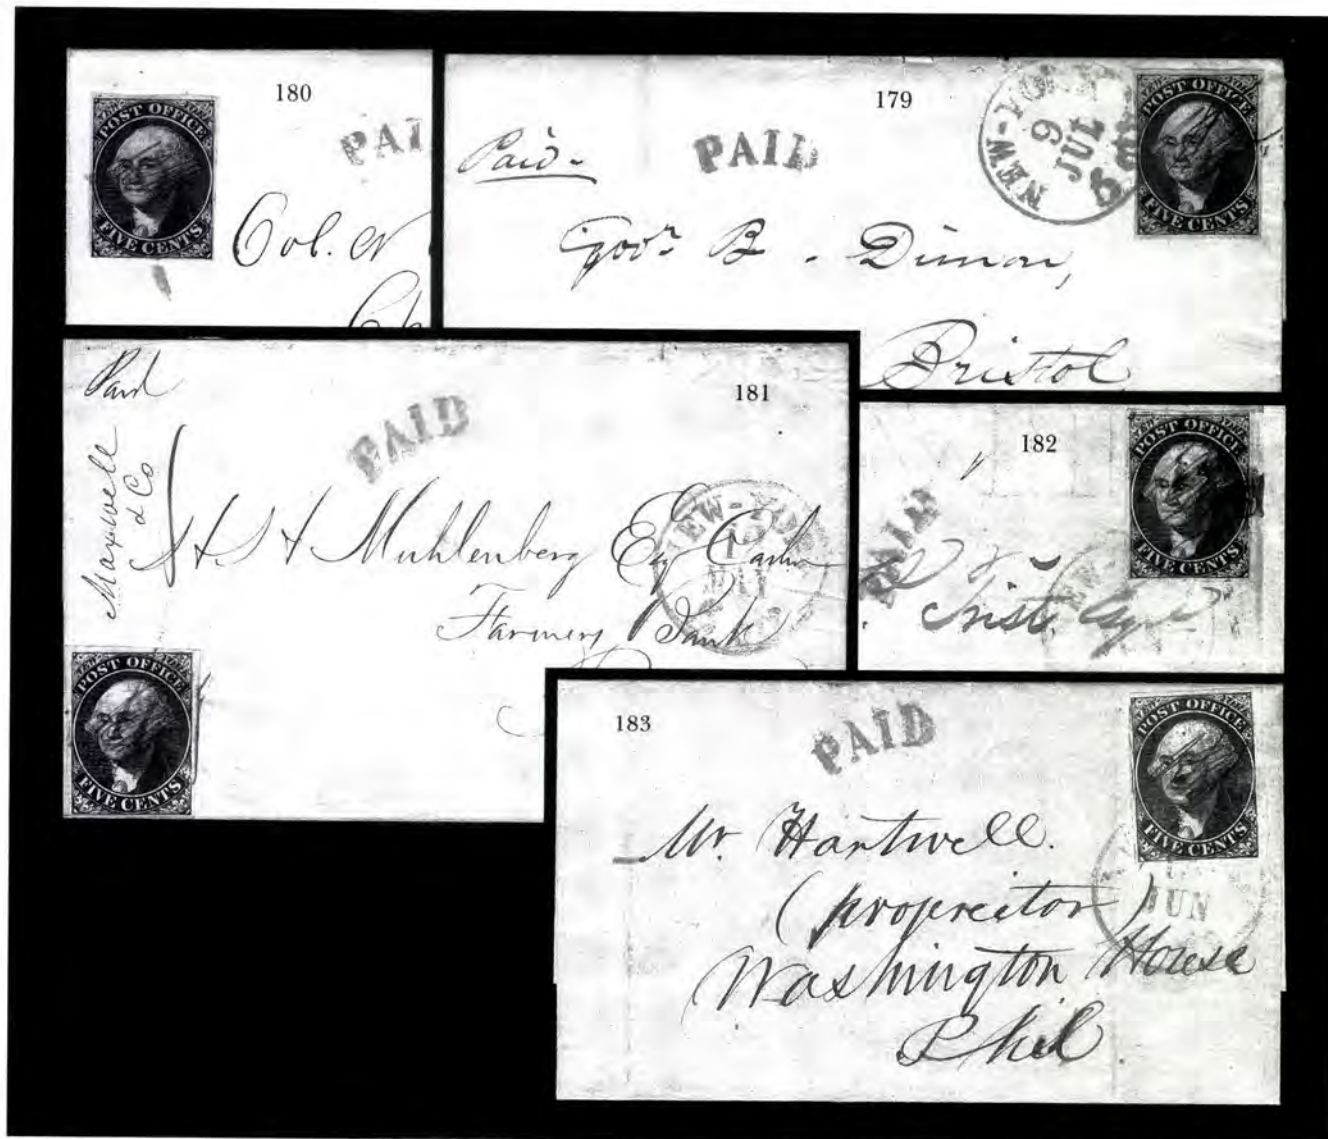 180
POST OFFICE
FIVE CENTS
PAI
Col. N
Ch
179
Paid
PAID
NEW-YORK
9
JUL
POST OFFICE
FIVE CENTS
Gov.r B. Dimon,
Bristol
181
Paid
PAID
Maxwell
& Co
Muhlenberg Esq Cashr
Farmers Bank
EW-YOR
POST OFFICE
FIVE CENTS
182
PAID
Trist Esqr
EW-
POST OFFICE
FIVE CENTS
183
PAID
POST OFFICE
FIVE CENTS
JUN
Mr. Hartwell.
(propreitor)
Washington House
Phil